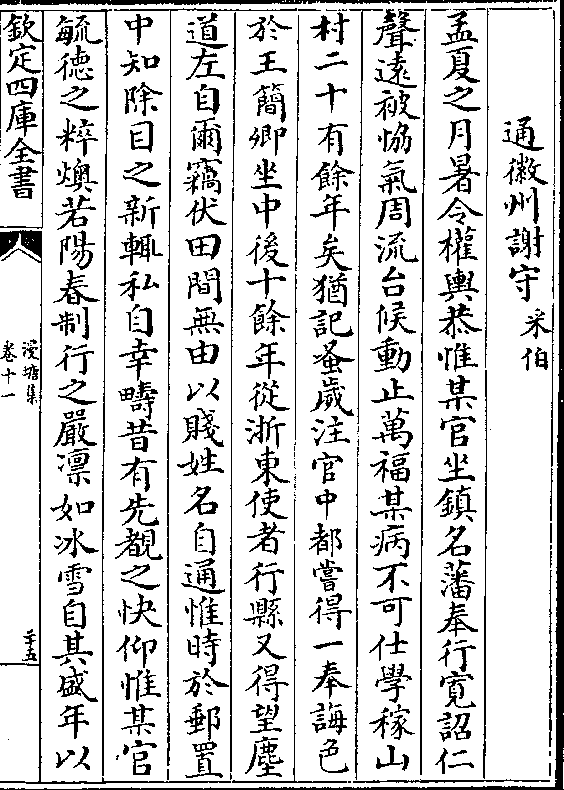 通徽州謝守采伯
孟夏之月暑令權輿恭惟某官坐鎮名藩奉行寛詔仁
聲遠被恊氣周流台候動止萬福某病不可仕學稼山
村二十有餘年矣猶記蚤歲注官中都嘗得一奉誨色
於王簡卿坐中後十餘年從浙東使者行縣又得望塵
道左自爾竊伏田間無由以賤姓名自通惟時於郵置
中知除目之新輒私自幸疇昔有先覩之快仰惟某官
毓德之粹燠若陽春制行之嚴凛如冰雪自其盛年以
欽定四庫全書
漫塘集
卷十一
二十五